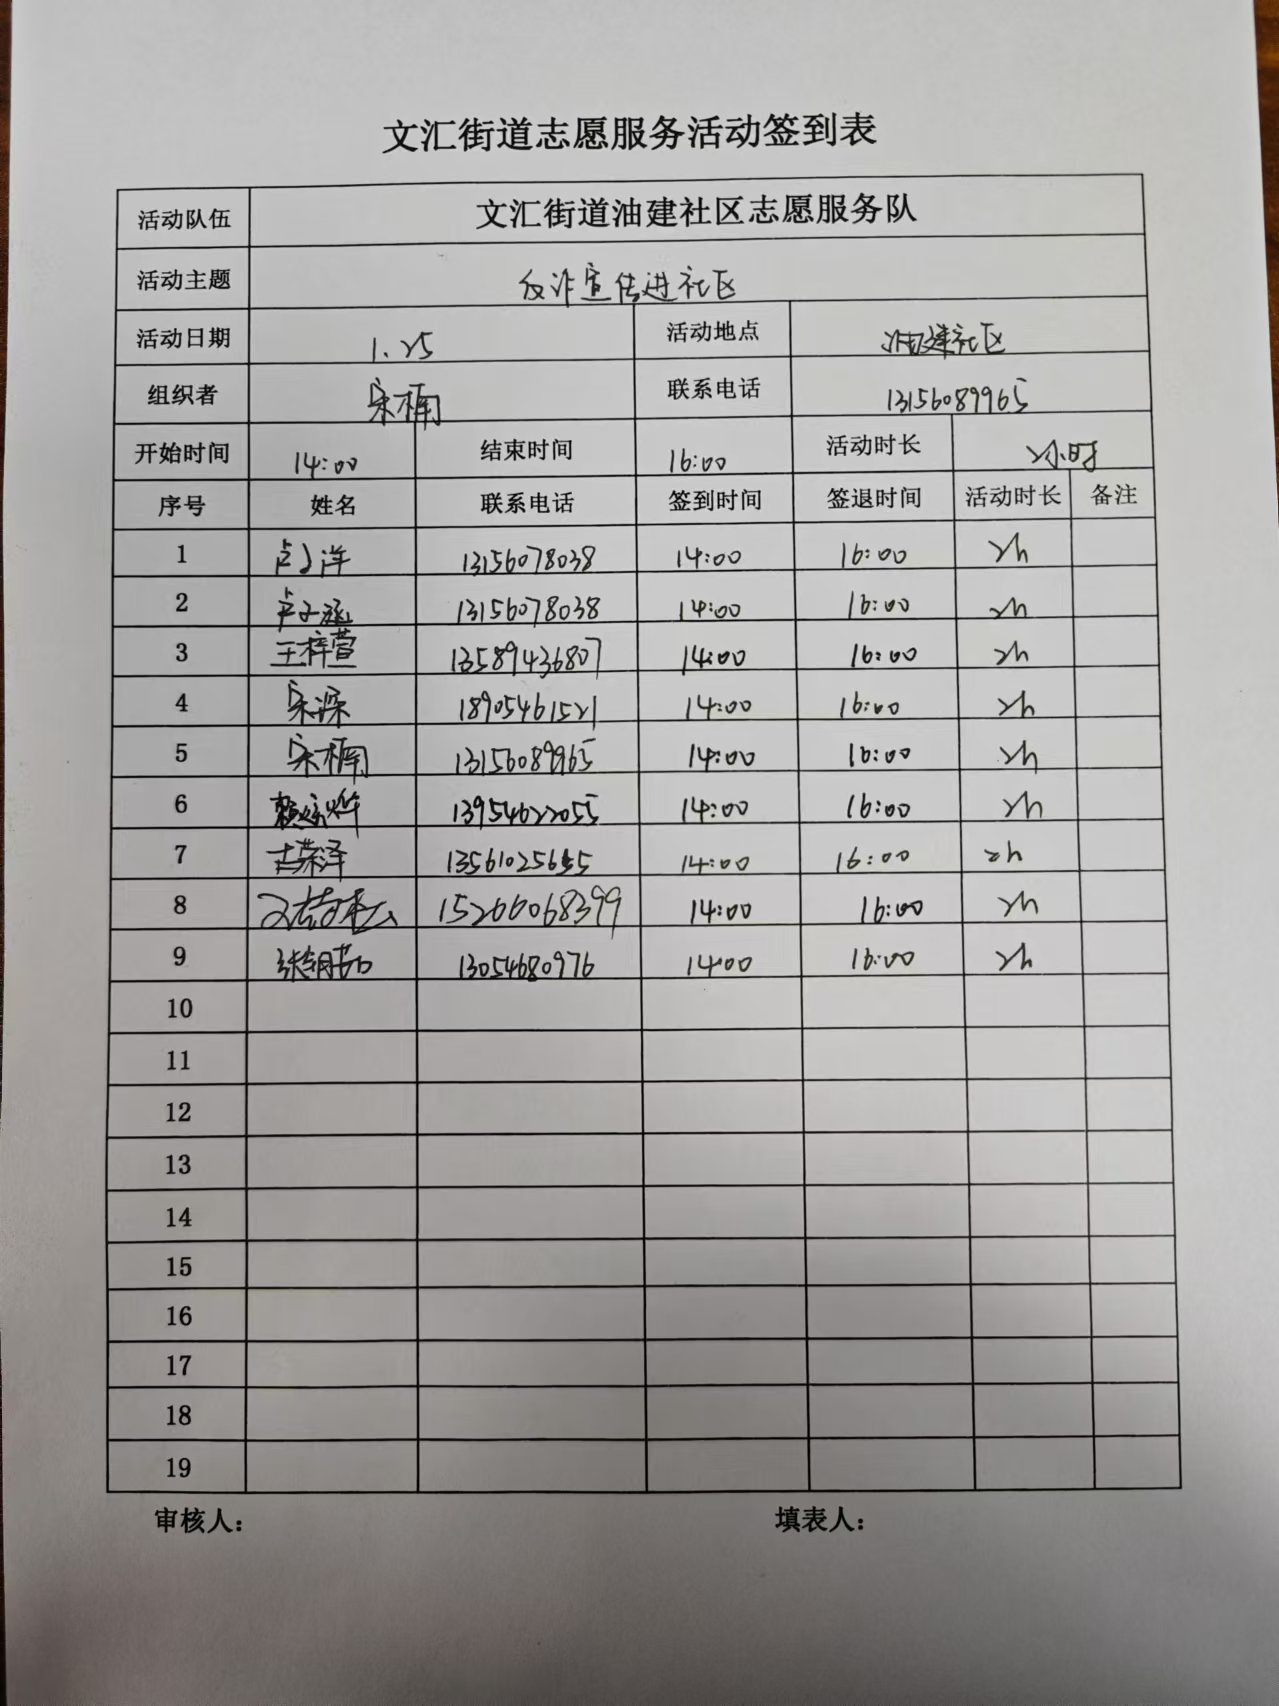 文汇街道志愿服务活动签到表
活动队伍 文汇街道油建社区志愿服务队
活动主题 反诈宣传进社区
活动日期 1.25 活动地点 油建社区
组织者 宋楠 联系电话 13156089965
开始时间 14:00 结束时间 16:00 活动时长 2小时
序号 姓名 联系电话 签到时间 签退时间 活动时长 备注
1 卢子洋 13156078038 14:00 16:00 2h
2 卢子涵 13156078038 14:00 16:00 2h
3 王梓萱 13589436807 14:00 16:00 2h
4 宋深 18905461521 14:00 16:00 2h
5 宋楠 13156089965 14:00 16:00 2h
6 13954622055 14:00 16:00 2h
7 荣泽 14:00 16:00 2h
8 15266068399 14:00 16:00 2h
9 13054680976 14:00 16:00 2h
10
11
12
13
14
15
16
17
18
19
审核人： 填表人：